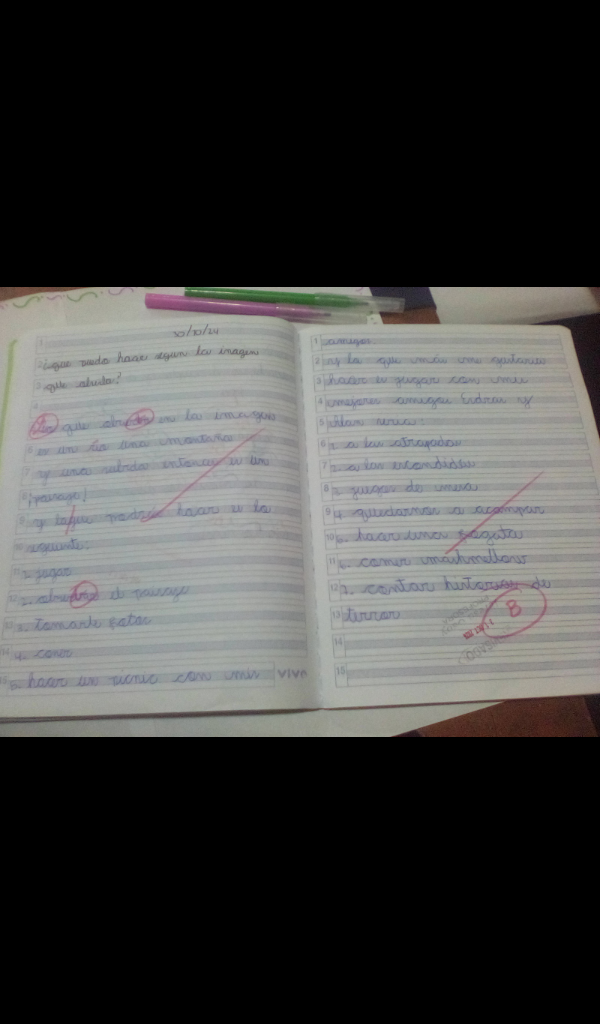 30/10/24
¿que puedo hacer segun la imagen
que aluda?
que en la imagen
es un rio una montaña
y una subida entonces es un
¡paisaje!
y la que podria hacer es lo
siguiente:
1. jugar
2. el paisaje
3. tomarle fotos
4. comer
5. hacer un picnic con mis
VIVA
amigos
y lo que más me gustaria
hacer es jugar con mis
mejores amigos y
seria:
1. a las atrapadas
2. a las escondidas
3. juegos de mesa
4. quedarnos a acampar
5. hacer una fogata
6. comer
7. contar historias de
terror
B